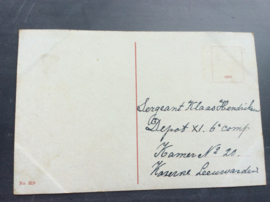 Sergeant Klaas Hendriksen
Depot XI. 6e comp.
Kamer No 20.
Kazerne Leeuwarden